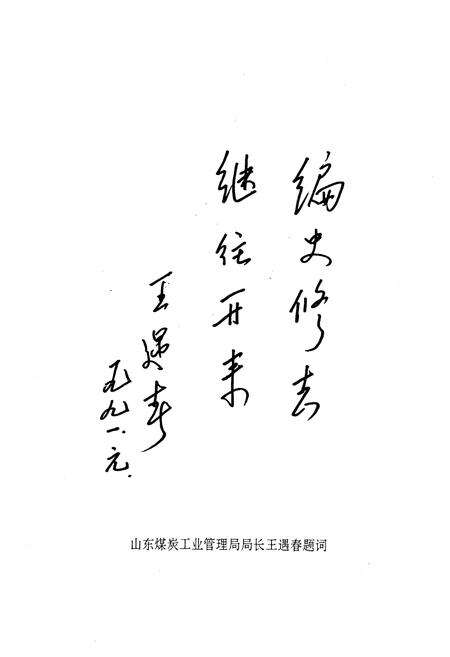 编史修志
继往开来
王遇春
一九九一.元.
山东煤炭工业管理局局长王遇春题词